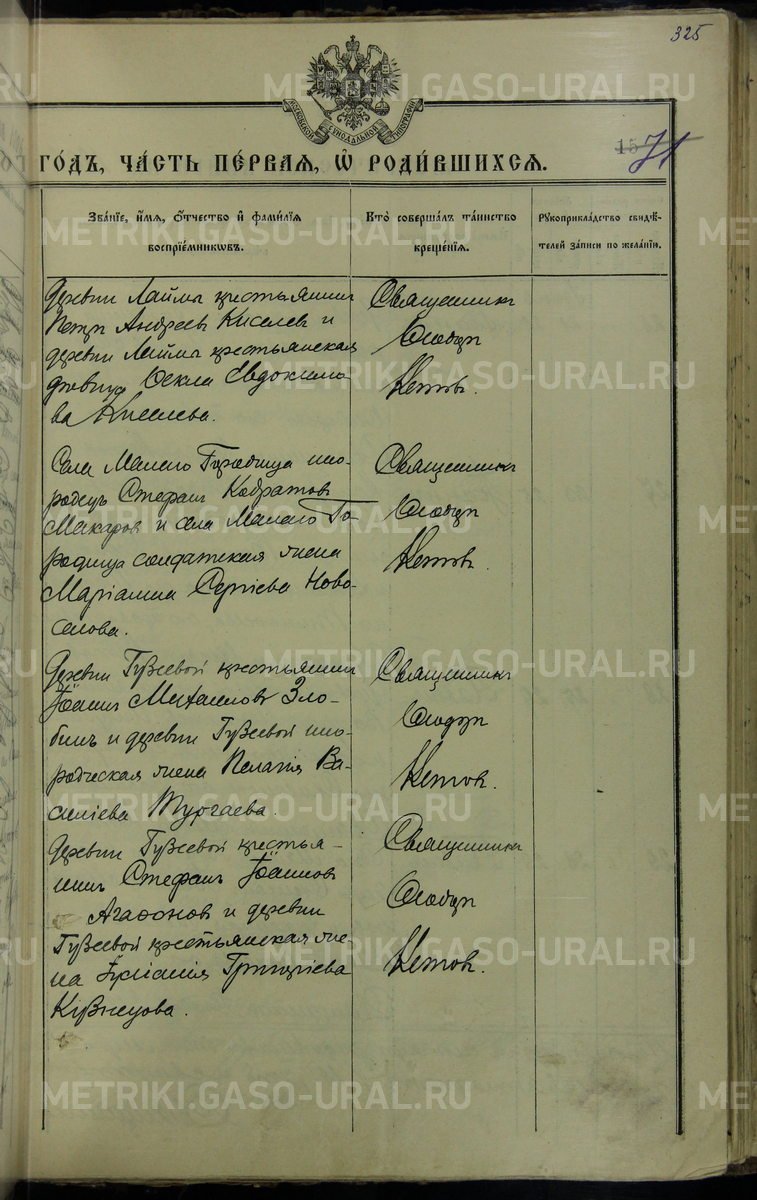 325
METRIKI.GASO-URAL.RU
МОСКОВСКОЙ СѴНОДАЛЬНОЙ ТИПОГРАФІИ
ГО́ДЪ, ЧА́СТЬ ПЕ́РВАЯ, Ѡ҆ РОДИ́ВШИХСЯ.
157 71
Зва́ніе, и҆́мя, ѻ҆́тчество и҆ фами́лія
воспріе́мникѡвъ.
Кто̀ соверша́лъ та́инство
креще́нія.
Рꙋкоприкла́дство свидѣ́-
телей за́писи по жела́нію.
Деревни Лаймы крестьянинъ
Петръ Андреевъ Киселевъ и
деревни Лаймы крестьянская
девица Ѳекла Евдокимо-
ва Киселева.
Священникъ
Ѳеодоръ
Кетовъ.
Села Малаго Городища ино-
родецъ Стефанъ
Макаровъ и села Малаго Го-
родища солдатская жена
Маріамна Сергіева Ново-
селова.
Священникъ
Ѳеодоръ
Кетовъ.
Деревни Гузеевой крестьянинъ
Іоаннъ Михаиловъ Зло-
бинъ и деревни Гузеевой ино-
родческая жена Пелагія Ва-
силіева Тургаева.
Священникъ
Ѳеодоръ
Кетовъ.
Деревни Гузеевой крестья-
нинъ Стефанъ Іоанновъ
Агафоновъ и деревни
Гузеевой крестьянская же-
на Іуліанія Григоріева
Кузнецова.
Священникъ
Ѳеодоръ
Кетовъ.